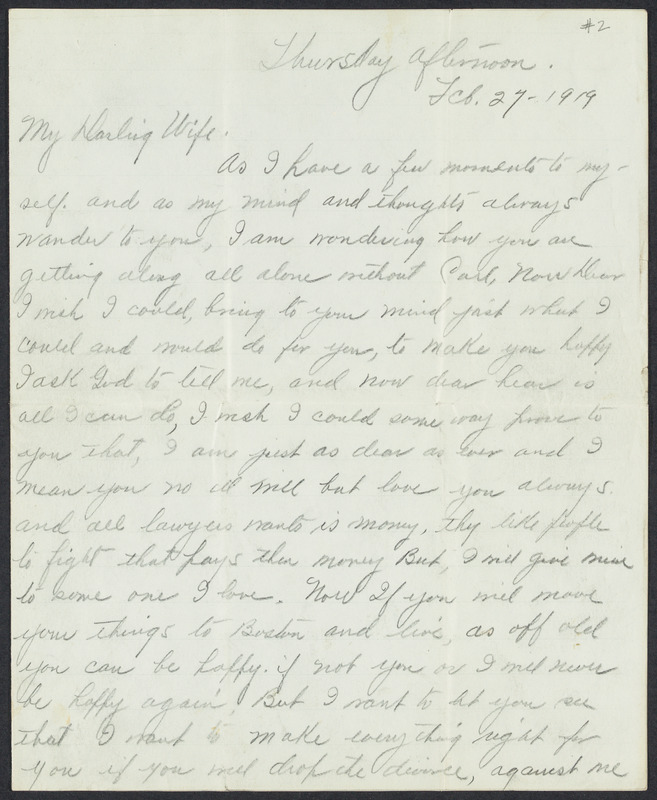 #2
Thursday afternoon.
Feb. 27-1919
My Darling Wife.
As I have a few moments to my-
self. and as my mind and thoughts always
wander to you, I am wondering how you are
getting along all alone without Carl, Now Dear
I wish I could, bring to your mind just what I
could and would do for you, to make you happy
I ask God to tell me, and now dear hear is
all I can do, I wish I could some way prove to
you that, I am just as dear as ever and I
mean you no ill will but love you always.
and all lawyers wants is money, thy like people
to fight that pays them money But, I will give mine
to some one I love. Now If you will move
your things to Boston and live, as off old
you can be happy. if not you or I will never
be happy again, But I want to let you see
that I want to make everything right for
you if you will drop the divorce, against me